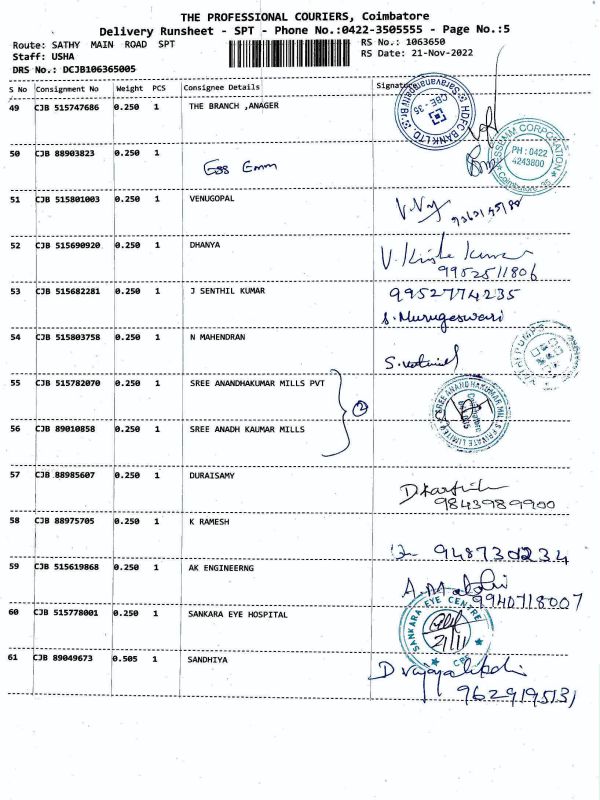 THE PROFESSIONAL COURIERS, Coimbatore
Delivery Runsheet - SPT - Phone No.:0422-3505555 - Page No.:5
Route: SATHY MAIN ROAD SPT
RS No.: 1063650
Staff: USHA
RS Date: 21-Nov-2022
DRS No.: DCJB106365005
S No Consignment No Weight PCS Consignee Details Signature
49 CJB 515747686 0.250 1 THE BRANCH ,ANAGER
HDFC BANK LTD.
CBE - 35
50 CJB 88903823 0.250 1
Ess Emm
ESSEMM CORPORATION
PH : 0422
4243800
Coimbatore
51 CJB 515801003 0.250 1 VENUGOPAL
52 CJB 515690920 0.250 1 DHANYA
9952511806
53 CJB 515682281 0.250 1 J SENTHIL KUMAR 9952774235
S.Murugeswari
54 CJB 515803758 0.250 1 N MAHENDRAN
55 CJB 515782070 0.250 1 SREE ANANDHAKUMAR MILLS PVT
2
SREE ANANDHAKUMAR MILLS PRIVATE LIMITED
56 CJB 89010858 0.250 1 SREE ANADH KAUMAR MILLS
57 CJB 88985607 0.250 1 DURAISAMY
9843989900
58 CJB 88975705 0.250 1 K RAMESH
9487302234
59 CJB 515619868 0.250 1 AK ENGINEERNG
9940718007
60 CJB 515778001 0.250 1 SANKARA EYE HOSPITAL
SANKARA EYE CENTRE
21/11
CBE
61 CJB 89049673 0.505 1 SANDHIYA
9629195131